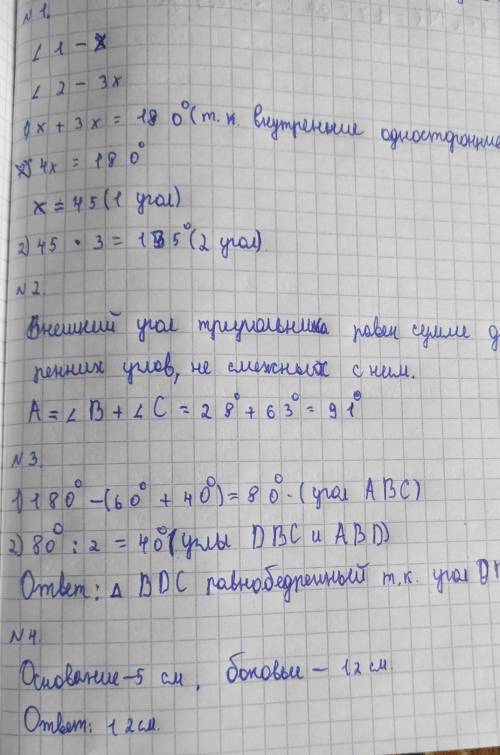 N1.
∠1 - x
∠2 - 3x
1) x + 3x = 180° (т.к. внутренние односторонние
2) 4x = 180°
x = 45 (1 угол)
2) 45 · 3 = 135° (2 угол)
N2.
Внешний угол треугольника равен сумме
ренних углов, не смежных с ним.
A = ∠B + ∠C = 28° + 63° = 91°
N3.
1) 180° - (60° + 40°) = 80° - (угол ABC)
2) 80° : 2 = 40° (углы DBC и ABD)
Ответ: △ BDC равнобедренный т.к. угол
N4.
Основание - 5 см, боковые - 12 см.
Ответ: 12 см.